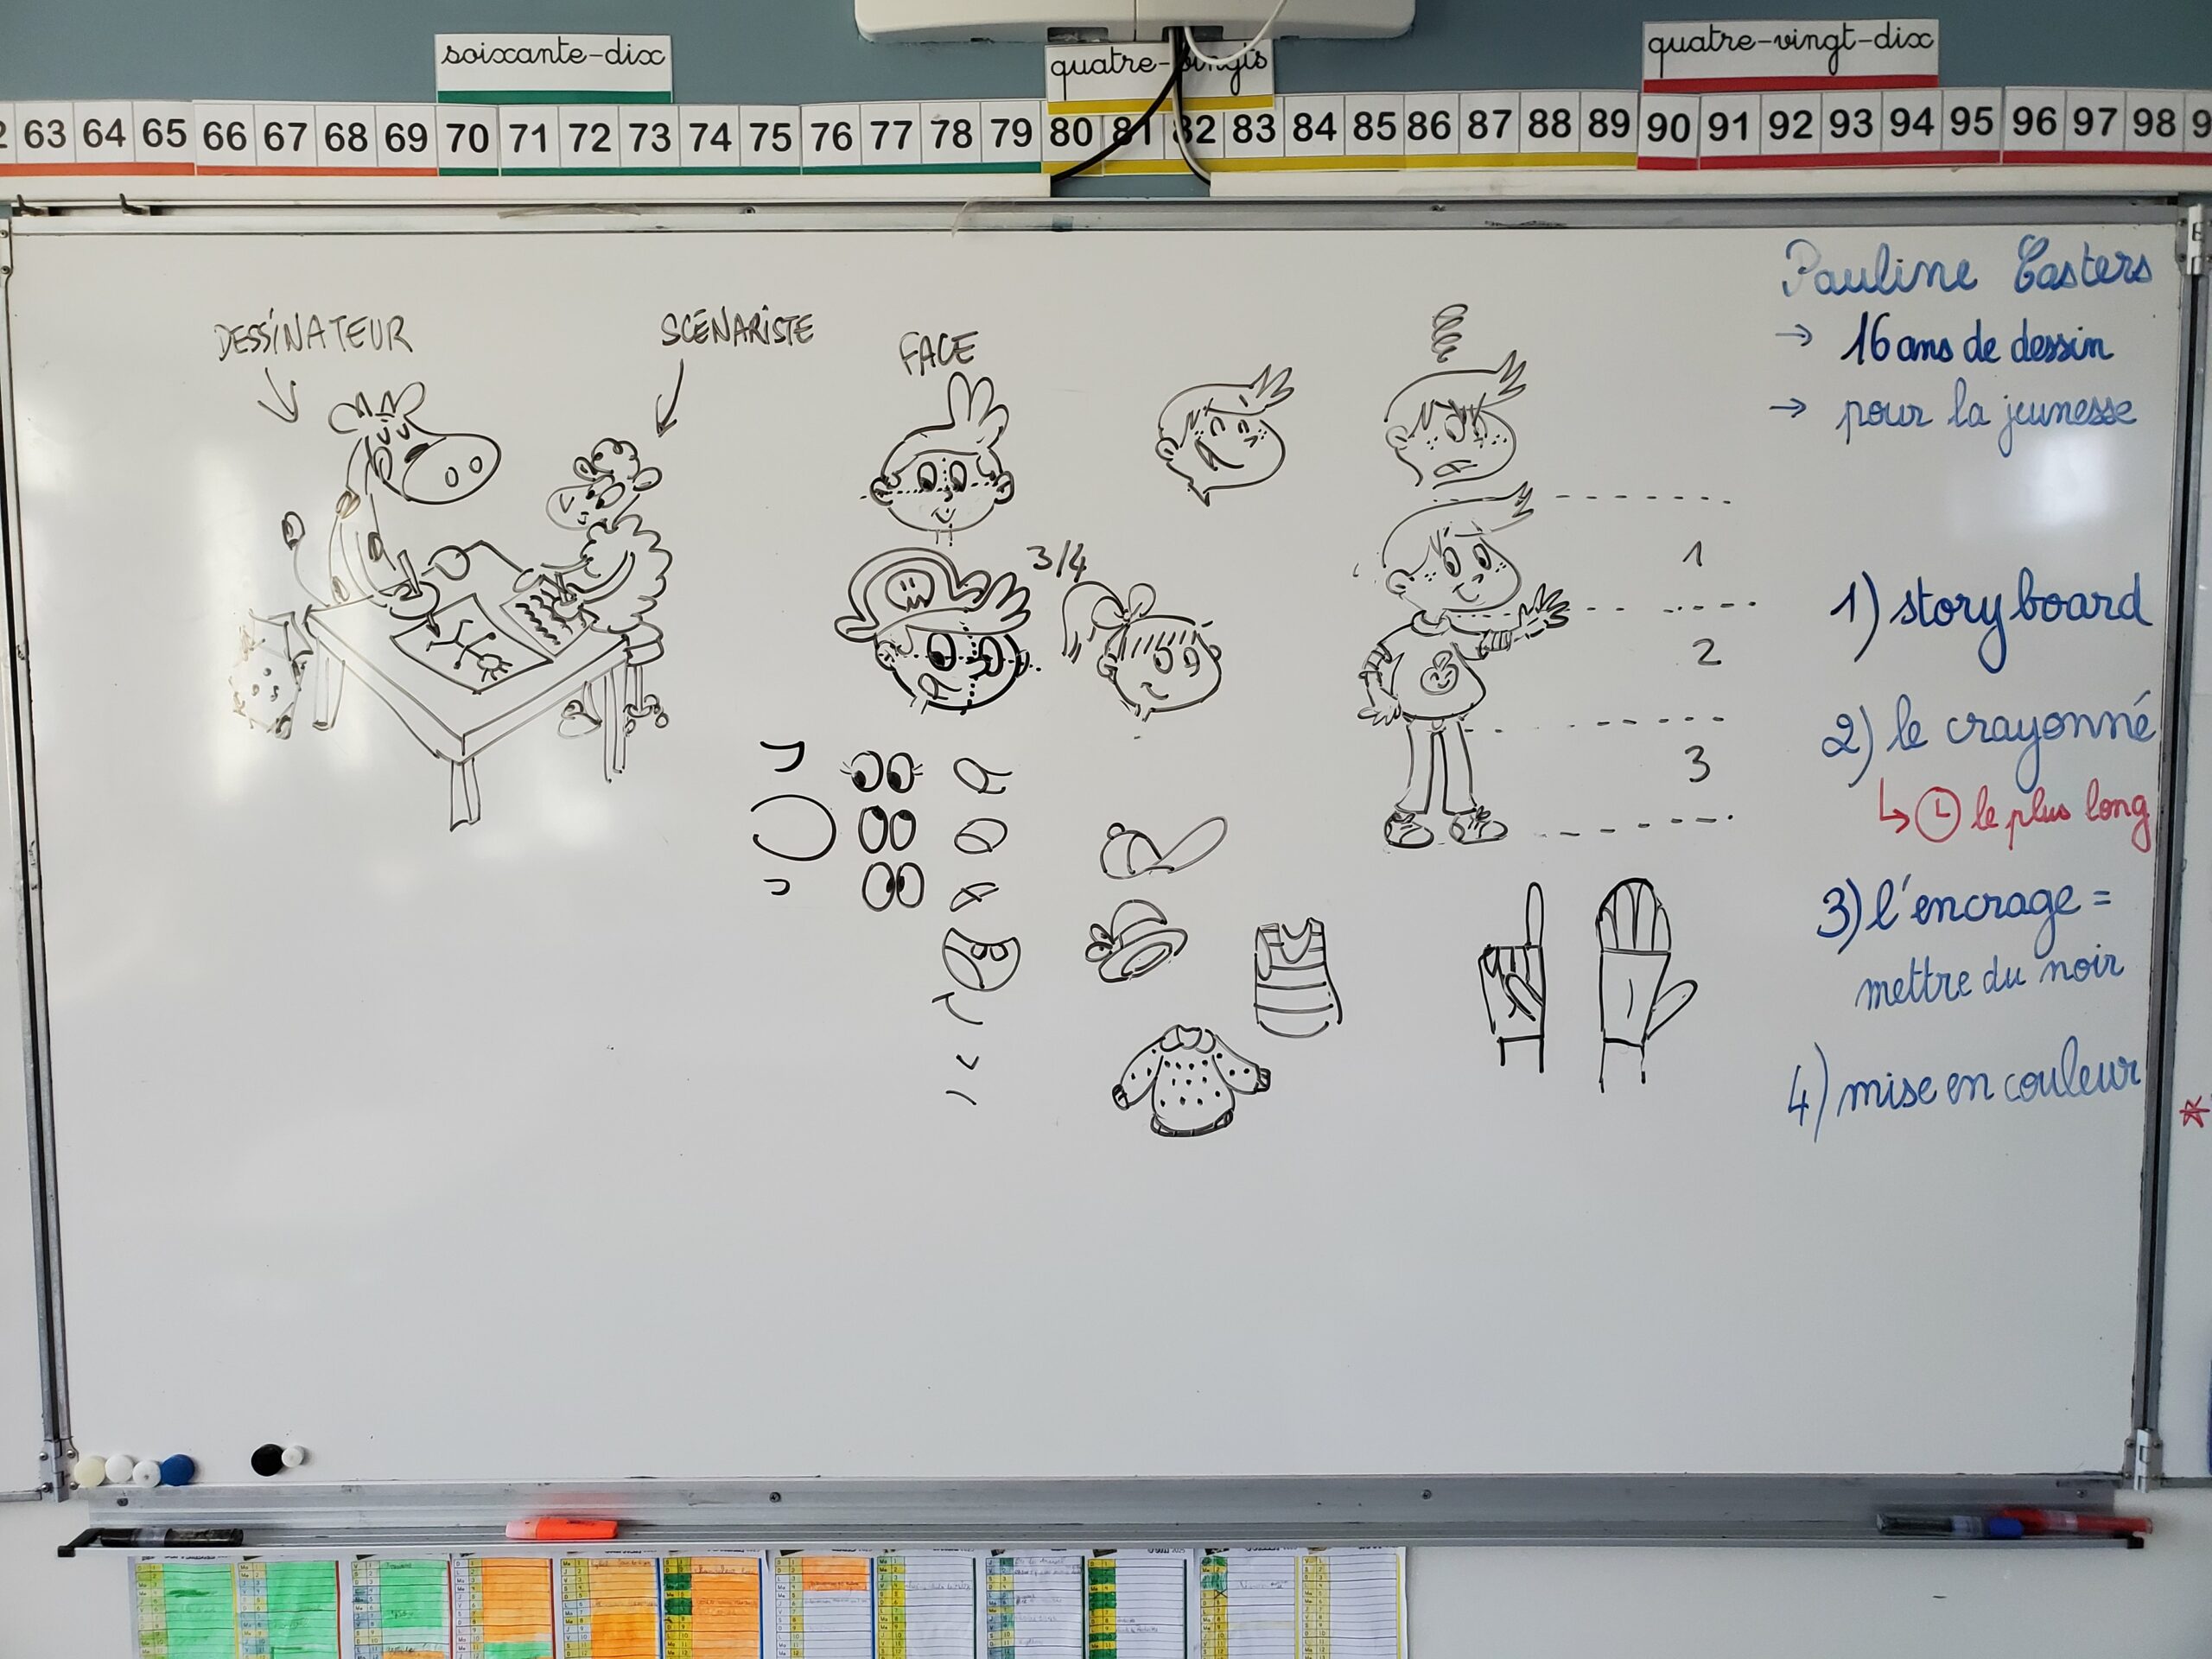 soixante-dix
quatre-vingts
quatre-vingt-dix
63 64 65 66 67 68 69 70 71 72 73 74 75 76 77 78 79 80 81 82 83 84 85 86 87 88 89 90 91 92 93 94 95 96 97 98
DESSINATEUR
SCÉNARISTE
FACE
3/4
1
2
3
Pauline Casters
→ 16 ans de dessin
→ pour la jeunesse
1) storyboard
2) le crayonné
↳ le plus long
3) l'encrage =
mettre du noir
4) mise en couleur